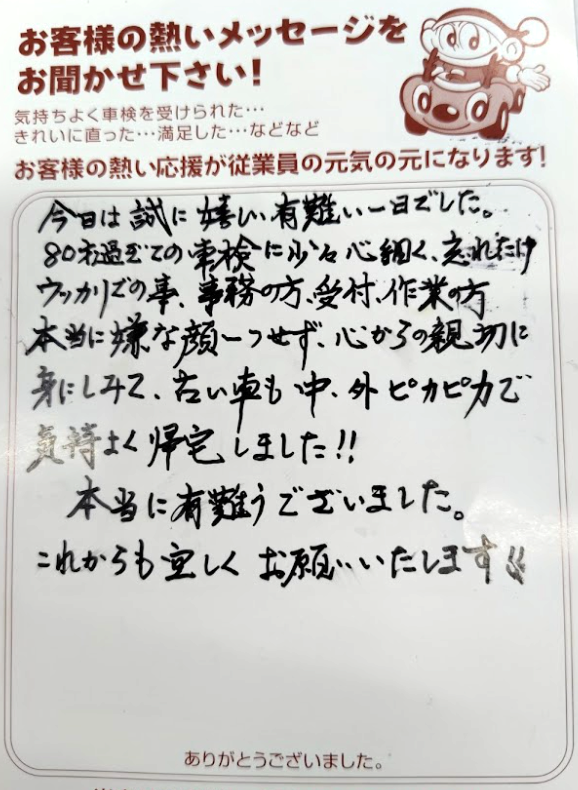 お客様の熱いメッセージを
お聞かせ下さい!
気持ちよく車検を受けられた…
きれいに直った…満足した…などなど
お客様の熱い応援が従業員の元気の元になります!
今日は誠に嬉しい有難い一日でした。
80才過ぎての車検に少々心細く、忘れたけ
ウッカリでの事、事務の方、受付、作業の方
本当に嫌な顔一つせず、心からの親切に
身にしみて、古い車も中、外ピカピカで
気持よく帰宅しました!!
本当に有難うございました。
これからも宜しくお願いいたします!!
ありがとうございました。